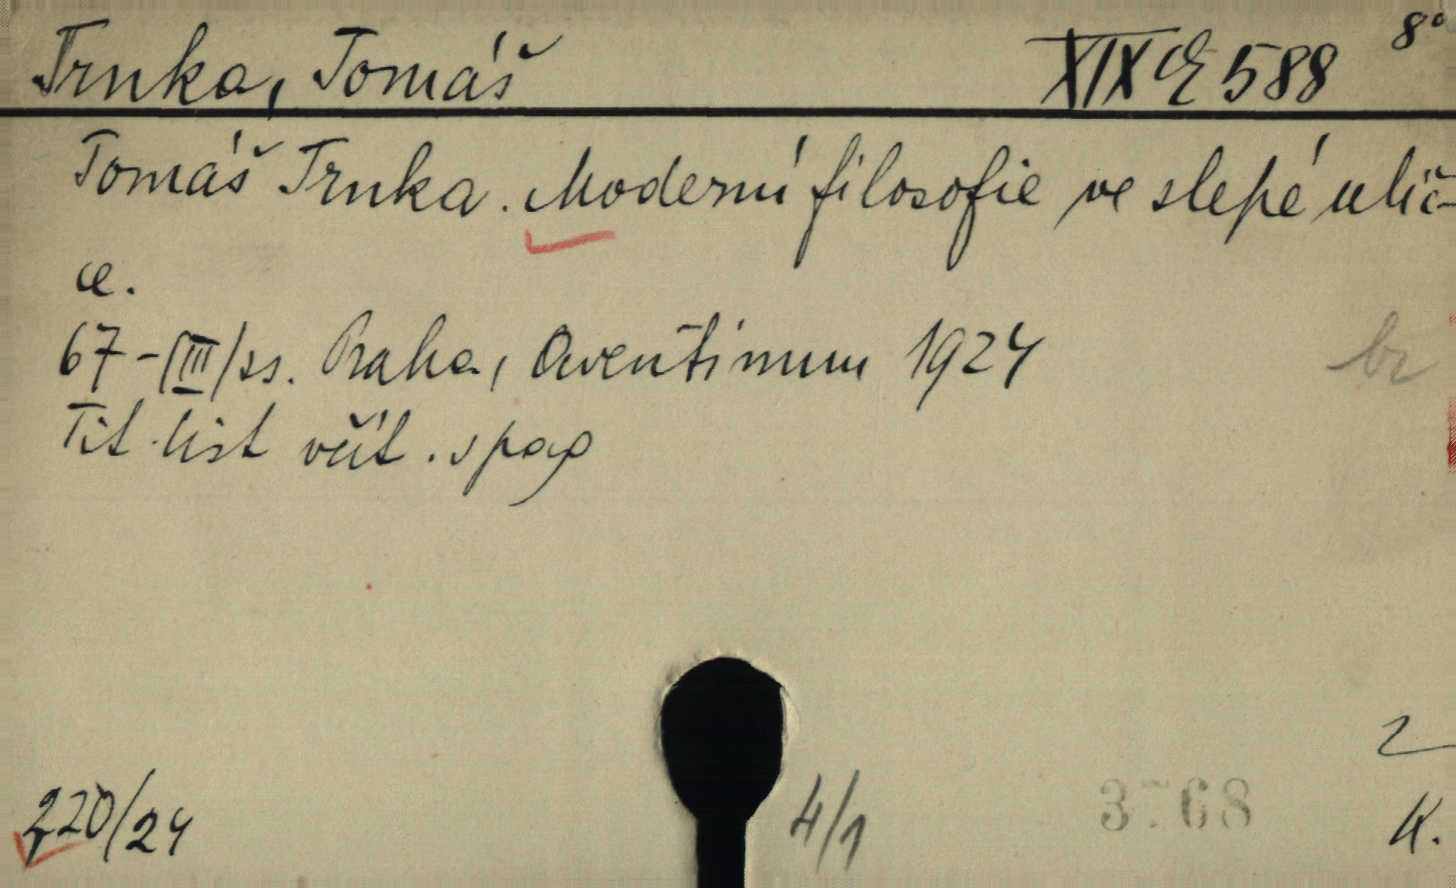 Trnka, Tomáš XIX E 588 8°
Tomáš Trnka. Moderní filosofie ve slepé ulič-
ce.
67-(III) ss. Praha, Aventinum 1924
br
Tit. list včít. v pag
2
220/24 4/1 3768 K.